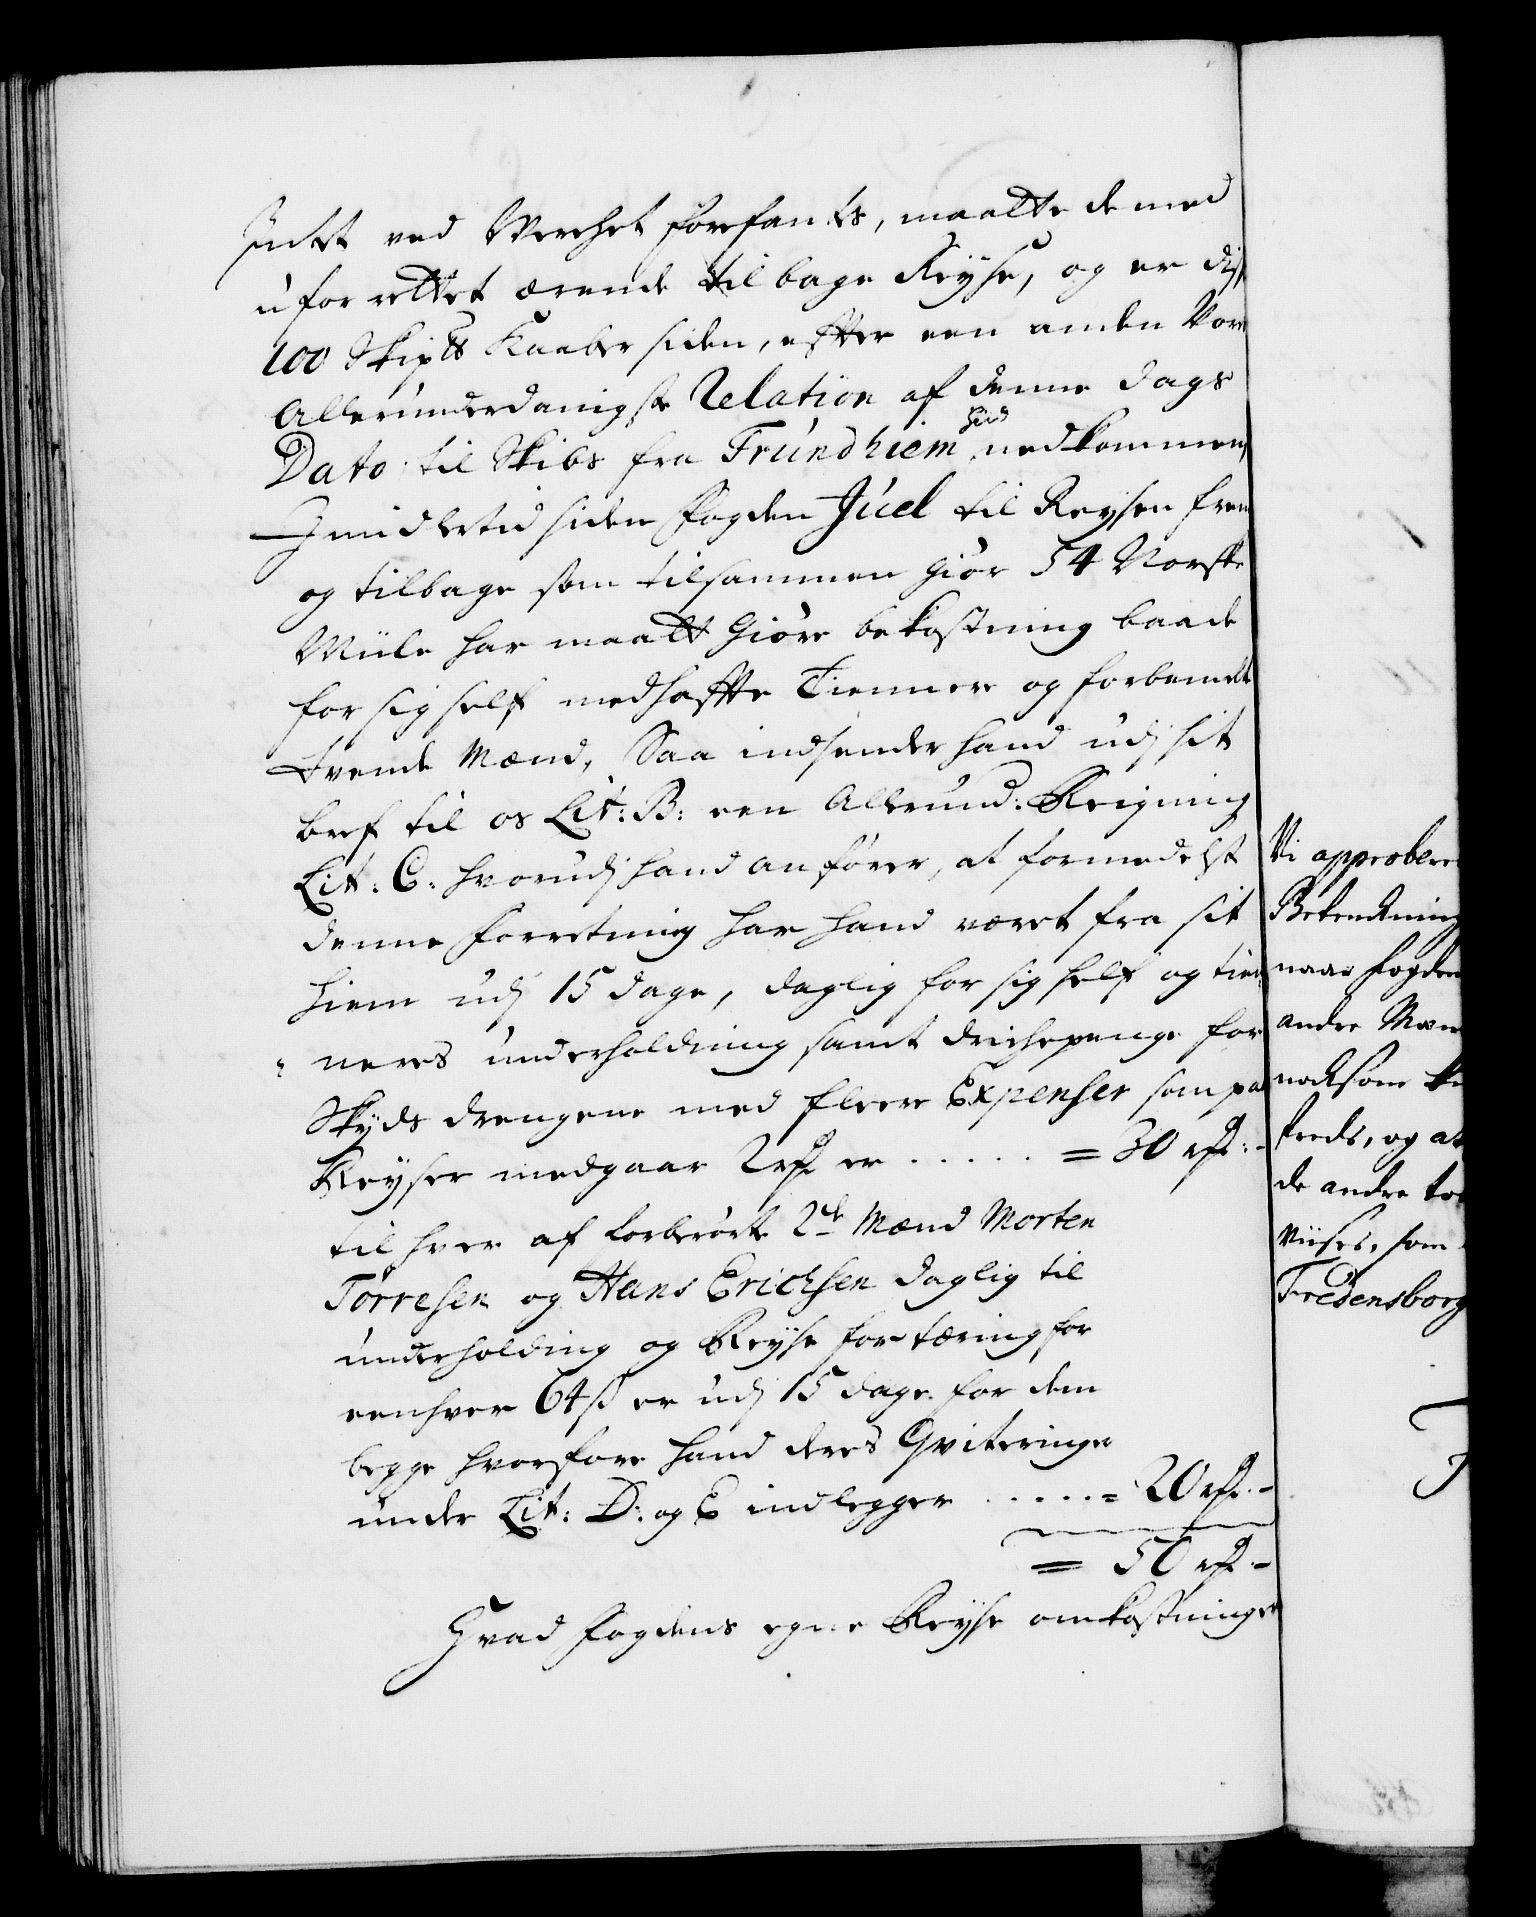 Intet ved Wercket forefantes, maatte de med
uforrettet ærende tilbage Reyse, og er diss
100 Skip℔ Kaaber siden, effter een anden Vor
Allerunderdanigste Relation af denne dags
Dato til Skibs fra Trundhiem hid nedkommen,
Imidlertid siden fogden Juel til Reysen frem
og tilbage som tilsammen giør 54 Norske
Miile har maatt giøre bekostning baade
for sig self medhaffte Tienner og forbemelte
tvende Mænd, Saa indsender hand udj sit
bref til os Lit: B: een Allerund: Reigning
Lit: C: hvorudj hand anfører, at formedelst
denne forretning har hand været fra sit
hiem udj 15 dage, daglig for sig self og tien
neres underholdning samt drickepenge for
Skyds drengene med fleere Expenser som paa
Reyser medgaar 2 rdr er ..... = 30 rdr:-
til hver af forberørte 2de Mænd Morten
Tørresen og Hans Erichsen daglig til
underholding og Reyse fortæring for
eenhver 64 ß er udj 15 dage for dem
begge hvorfore hand deres Qviteringer
under Lit: D: og E indlegger ..... = 20 rdr.-
= 50 rdr.-
Hvad fogdens egne Reyse omkostninger
Vi approbere
Betenckning
naar fogden
andre Mæn
nocksom
freds, og at
de andre to
viises, som
Fredensborg